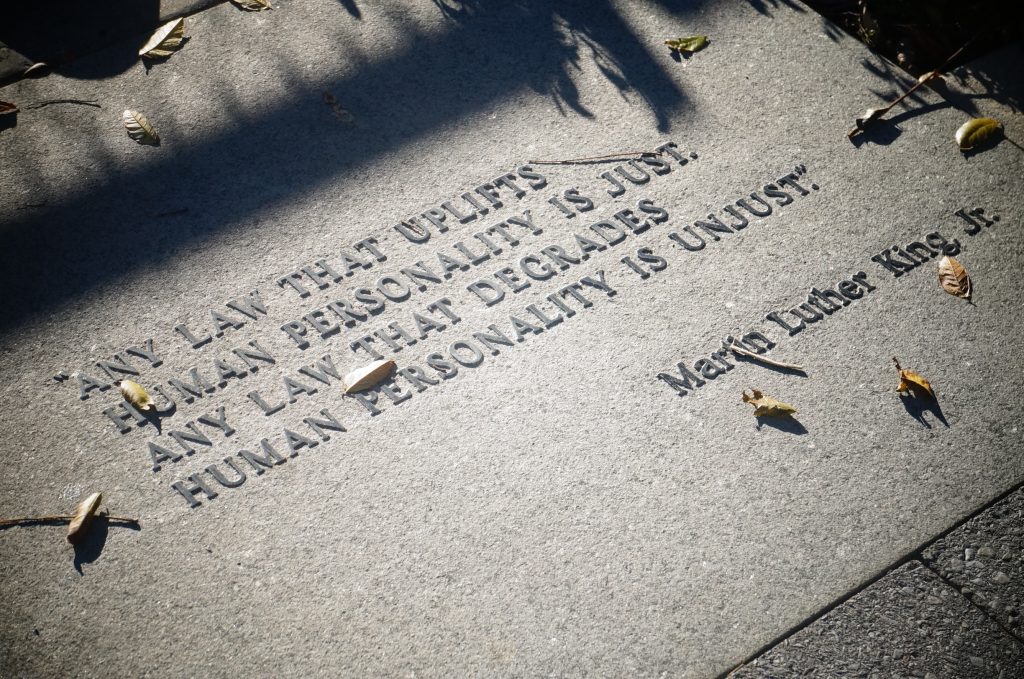 "ANY LAW THAT UPLIFTS
HUMAN PERSONALITY IS JUST.
ANY LAW THAT DEGRADES
HUMAN PERSONALITY IS UNJUST."
Martin Luther King, Jr.